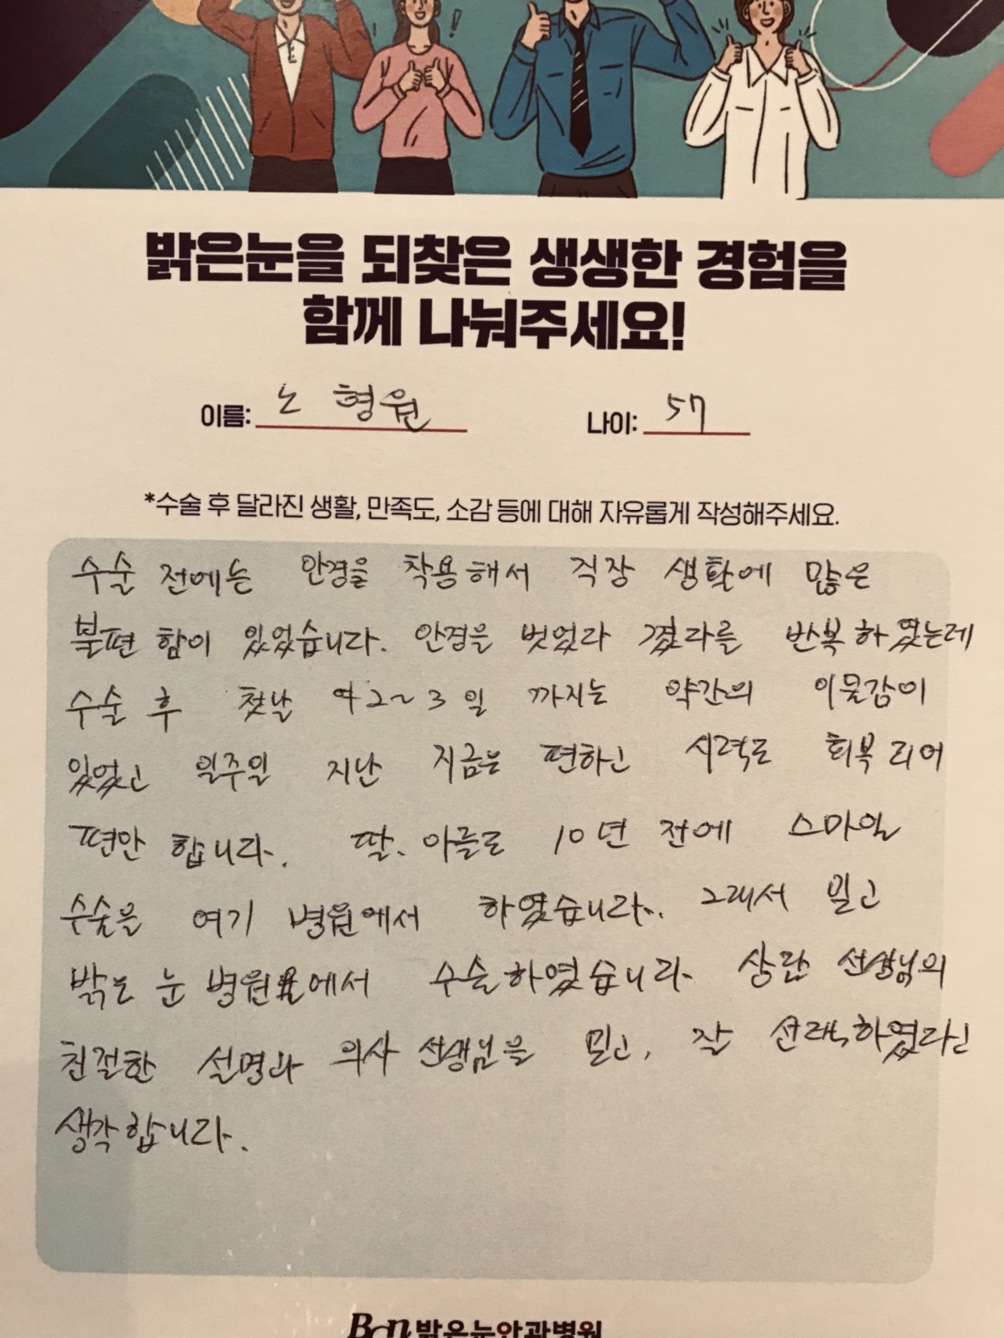 밝은눈을 되찾은 생생한 경험을
함께 나눠주세요!
이름: 노 형원 나이: 57
*수술 후 달라진 생활, 만족도, 소감 등에 대해 자유롭게 작성해주세요.
수술 전에는 안경을 착용해서 직장 생활에 많은
불편 함이 있었습니다. 안경을 벗었다 꼈다를 반복하였는데
수술 후 첫날 약2~3일 까지는 약간의 이물감이
있었고 일주일 지난 지금은 편하고 시력도 회복 되어
편안 합니다. 딸. 아들도 10년 전에 스마일
수술을 여기 병원에서 하였습니다. 그래서 믿고
밝은 눈 병원에서 수술하였습니다. 상담 선생님의
친절한 설명과 의사 선생님을 믿고, 잘 선택하였다고
생각합니다.
BGN 밝은눈안과병원